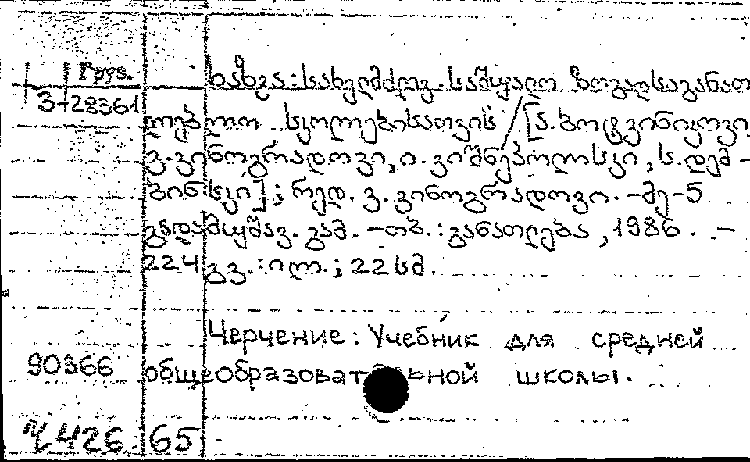 Груз.
3-28361
ხაზვა: სახელმძღვ. საშუალო ზოგადსაგანათ
ლებლო სკოლებისათვის / [ა. ბოტვინიკოვი,
ვ. ვინოგრადოვი, ი. ვიშნეპოლსკი, ს. დემ-
ბინსკი]; რედ. ვ. ვინოგრადოვი. -მე-5
გადამუშავ. გამ. -თბ.: განათლება, 1986. -
224 გვ.: ილ.; 22 სმ.
Черчение: Учебник для средней
90366 общеобразовательной школы.
426 65